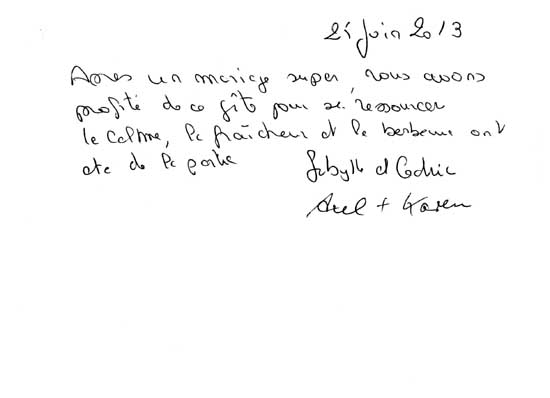 Juin 2013
Après un mariage super, nous avons
profité de ce gîte pour se ressourcer
le calme, la fraîcheur et le barbecue ont
été de la partie
Sibylle et Cédric
Axel + Karen